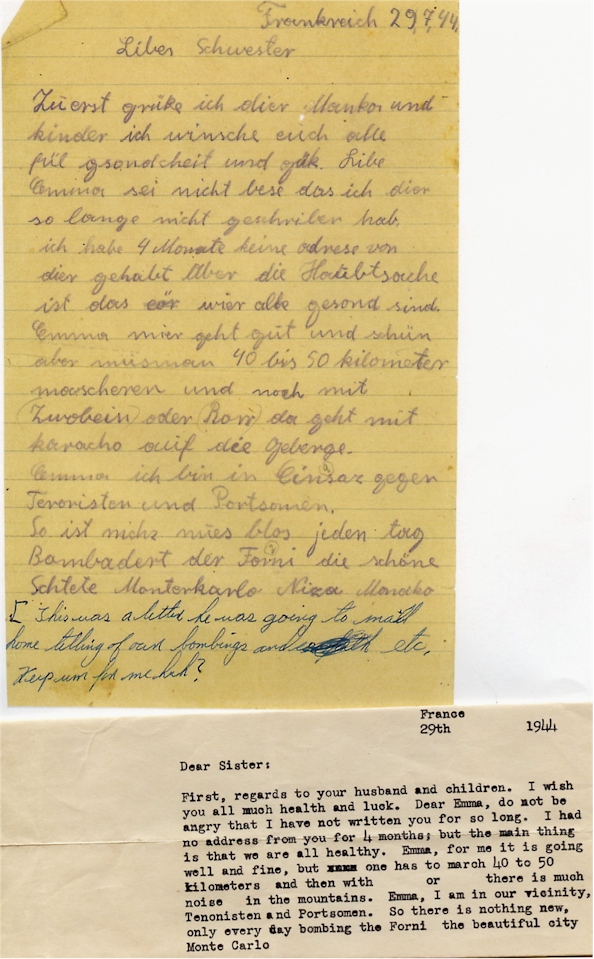 Frankreich 29,7,44.
Liber Schwester
Zuerst grüße ich dier Mankor und
kinder ich winsche euch alle
fill gsondcheit und gük. Libe
Emma sei nicht bese das ich dier
so lange nicht geschriber hab.
ich habe 4 Monate keine adrese von
dier gehabt Über die Haubtsache
ist das wier alle gesond sind.
Emma mier geht gut und schün
aber müsman 40 bis 50 kilometer
marscheren und noch mit
(Zwobein) oder (Rorr) da geht mit
karacho auf die Geberge.
Emma ich bin in Einsaz gegen
(?)
Teroristen und Portsomen.
So ist nichz nües blos jeden tag
(?)
Bambadert der Forni die schöne
Schtete Monterkarlo Niza Monako
[ This was a letter he was going to mail
home telling of our bombings and etc,
Keep um for me huh?
France
29th 1944
Dear Sister:
First, regards to your husband and children. I wish
you all much health and luck. Dear Emma, do not be
angry that I have not written you for so long. I had
no address from you for 4 months; but the main thing
is that we are all healthy. Emma, for me it is going
well and fine, but xxxx one has to march 40 to 50
kilometers and then with or there is much
noise in the mountains. Emma, I am in our vicinity,
Tenonisten and Portsomen. So there is nothing new,
only every day bombing the Forni the beautiful city
Monte Carlo